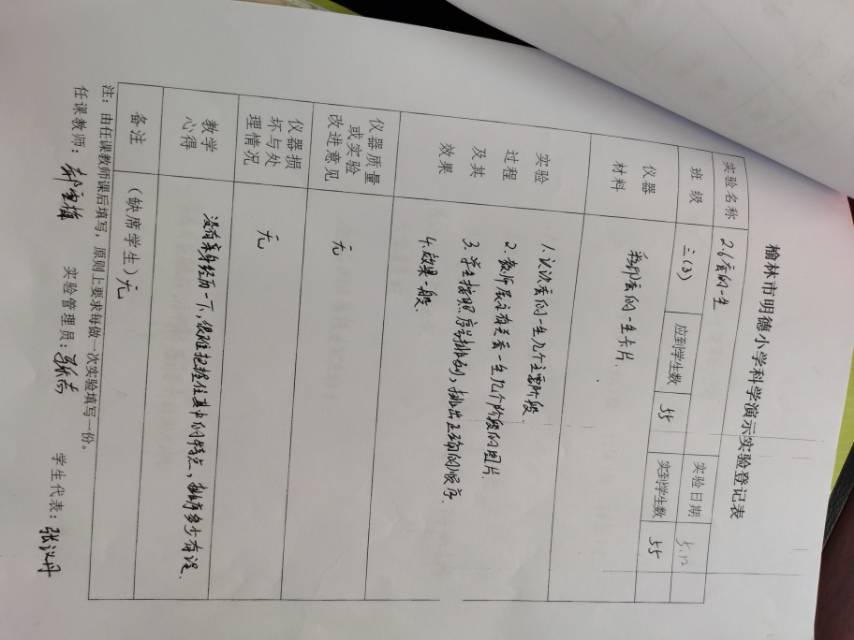 榆林市明德小学科学演示实验登记表
实验名称 2.6蚕的一生 实验日期 5.12
班级 三(3) 应到学生数 55 实到学生数 55
仪器材料 彩印蚕的一生卡片.
实验过程及其效果 1.认识蚕的一生几个主要阶段.
2.教师展示有关蚕一生几个阶段的图片.
3.学生按照序号排列,排出正确的顺序.
4.效果一般.
仪器质量或实验改进意见 无
仪器损坏与处理情况 无
教学心得 没有亲身经历一下,很难把握住其中的特点,排序多少有误.
备注 (缺席学生)无
注:由任课教师课后填写,原则上要求每做一次实验填写一份。
任课教师: 实验管理员: 学生代表:张汉丹